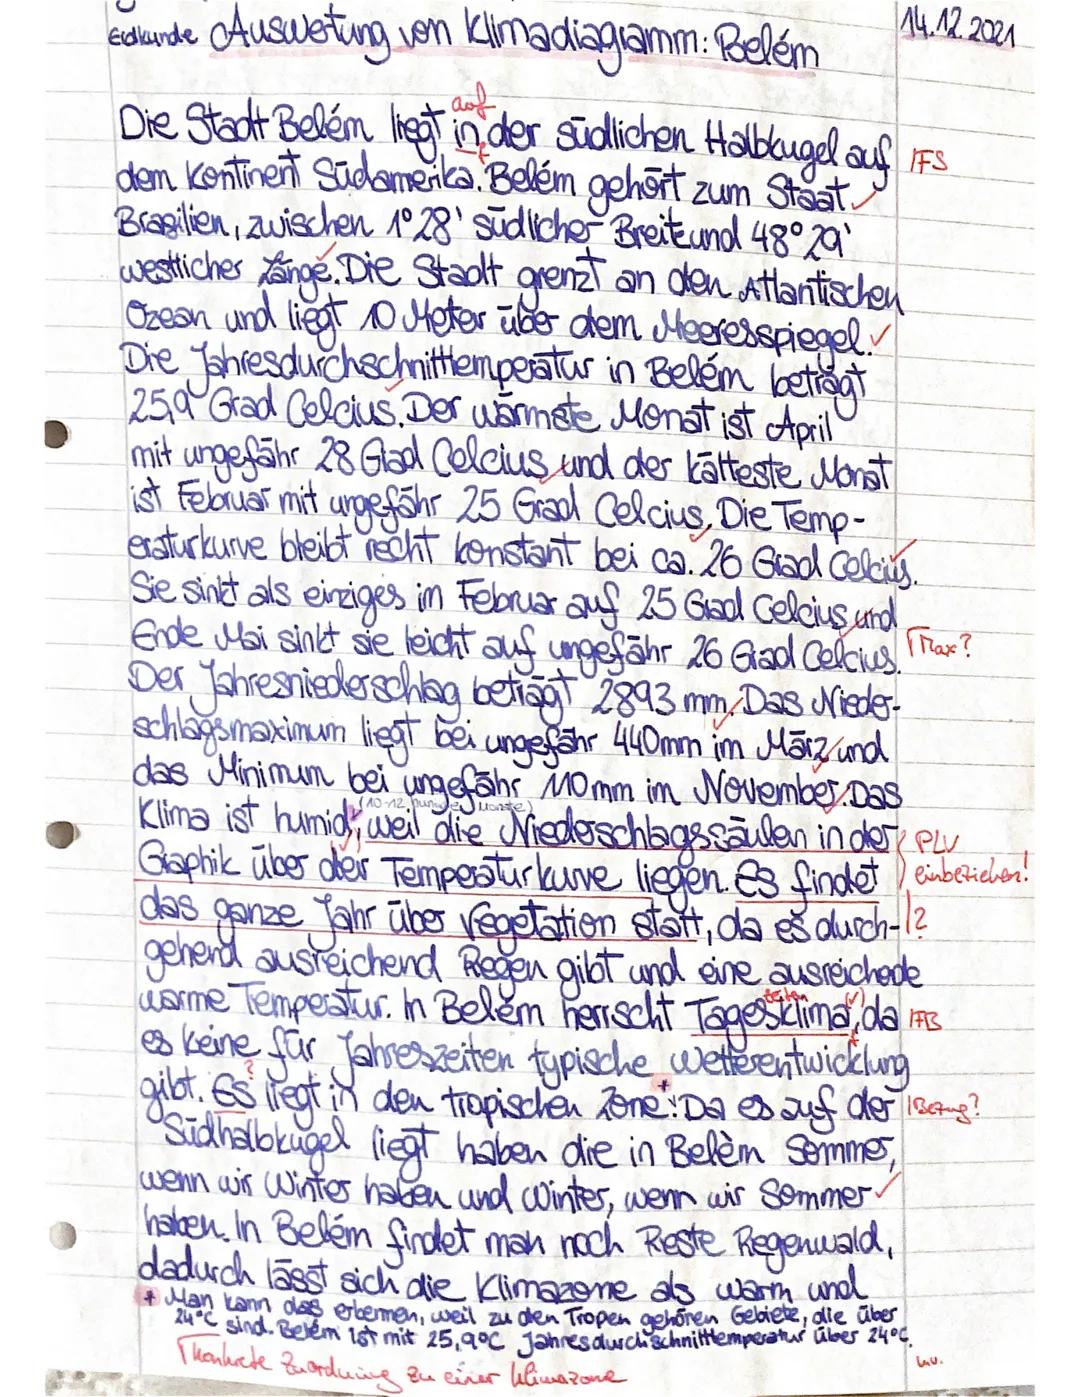 Erdkunde Auswertung von Klimadiagramm: Belém
14.12.2021
auf
Die Stadt Belém liegt in der südlichen Halbkugel auf
IFS
dem Kontinent Südamerika. Belém gehört zum Staat
Brasilien, zwischen 1° 28' südlicher Breite und 48° 29'
westlicher Länge. Die Stadt grenzt an den Atlantischen
Ozean und liegt 10 Meter über dem Meeresspiegel.
Die Jahresdurchschnittemperatur in Belém beträgt
25,9 Grad Celcius. Der wärmste Monat ist April
mit ungefähr 28 Grad Celcius und der kälteste Monat
ist Februar mit ungefähr 25 Grad Celcius. Die Temp-
eraturkurve bleibt recht konstant bei ca. 26 Grad Celcius.
Sie sinkt als einziges im Februar auf 25 Grad Celcius und
Ende Mai sinkt sie leicht auf ungefähr 26 Grad Celcius.
Max?
Der Jahresniederschlag beträgt 2893 mm. Das Nieder-
schlagsmaximum liegt bei ungefähr 440mm im März und
das Minimum bei ungefähr 110mm im November. Das
(10-12 humide Monate)
Klima ist humid, weil die Niederschlagssäulen in der
PLV
Graphik über der Temperaturkurve liegen. Es findet
einbeziehen!
das ganze Jahr über Vegetation statt, da es durch-
?
gehend ausreichend Regen gibt und eine ausreichende
warme Temperatur. In Belém herrscht Tagesklima, da
zeiten
IFB
es keine für Jahreszeiten typische Wetterentwicklung
gibt. Es liegt in den tropischen Zone. + Da es auf der
?
Bezug?
Südhalbkugel liegt haben die in Belèm Sommer,
wenn wir Winter haben und Winter, wenn wir Sommer
haben. In Belém findet man noch Reste Regenwald,
dadurch lässt sich die Klimazone als warm und
+ Man kann das erkennen, weil zu den Tropen gehören Gebiete, die über
24°C sind. Belém ist mit 25,9°C Jahresdurchschnitttemperatur über 24°C.
Konkrete Zuordnung zu einer Klimazone